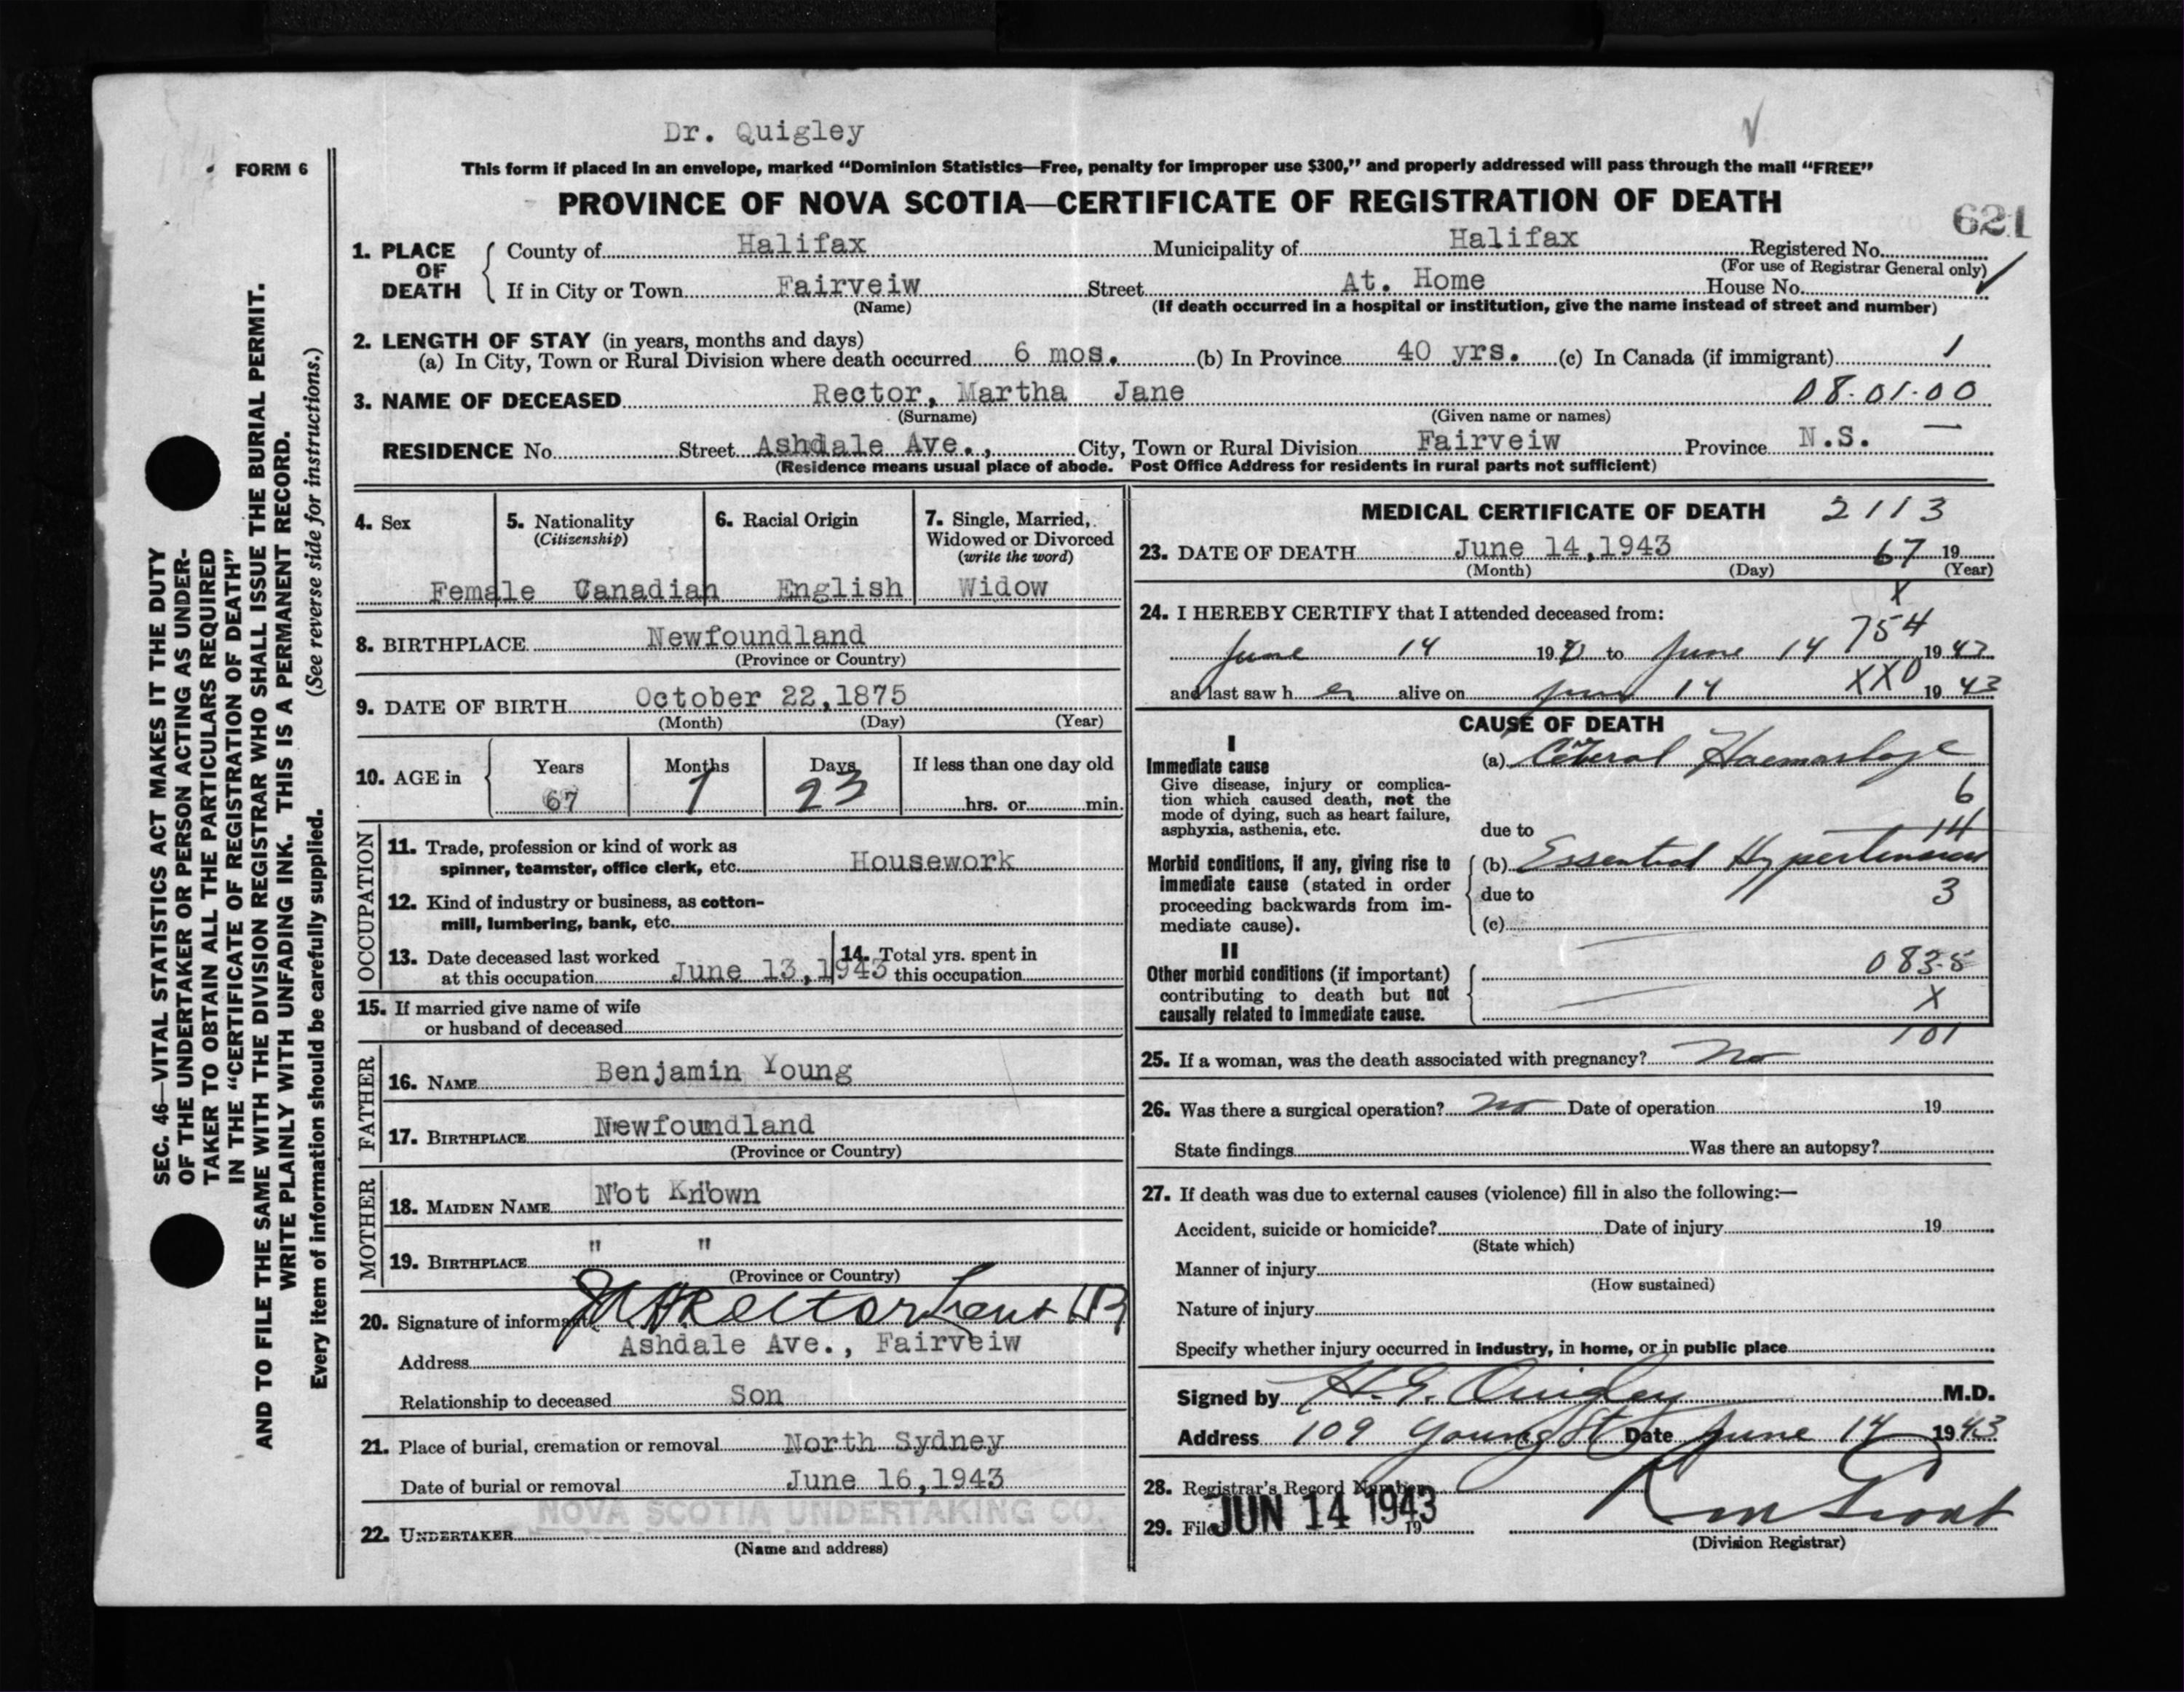 Dr. Quigley
FORM 6
This form if placed in an envelope, marked “Dominion Statistics—Free, penalty for improper use $300,” and properly addressed will pass through the mail “FREE”
PROVINCE OF NOVA SCOTIA—CERTIFICATE OF REGISTRATION OF DEATH
621
1. PLACE OF DEATH
County of Halifax Municipality of Halifax Registered No.
(For use of Registrar General only)
If in City or Town Fairveiw Street At. Home House No.
(Name) (If death occurred in a hospital or institution, give the name instead of street and number)
2. LENGTH OF STAY (in years, months and days)
(a) In City, Town or Rural Division where death occurred 6 mos. (b) In Province 40 yrs. (c) In Canada (if immigrant) 1
3. NAME OF DECEASED Rector, Martha Jane 08-01-00
(Surname) (Given name or names)
RESIDENCE No. Street Ashdale Ave., City, Town or Rural Division Fairveiw Province N.S. —
(Residence means usual place of abode. Post Office Address for residents in rural parts not sufficient)
4. Sex
Female
5. Nationality
(Citizenship)
Canadian
6. Racial Origin
English
7. Single, Married, Widowed or Divorced
(write the word)
Widow
8. BIRTHPLACE Newfoundland
(Province or Country)
9. DATE OF BIRTH October 22,1875
(Month) (Day) (Year)
10. AGE in
Years Months Days If less than one day old
67 7 23 hrs. or min.
OCCUPATION
11. Trade, profession or kind of work as
spinner, teamster, office clerk, etc. Housework
12. Kind of industry or business, as cotton-
mill, lumbering, bank, etc.
13. Date deceased last worked
at this occupation June 13,1943
14. Total yrs. spent in
this occupation
15. If married give name of wife
or husband of deceased
FATHER
16. NAME Benjamin Young
17. BIRTHPLACE Newfoundland
(Province or Country)
MOTHER
18. MAIDEN NAME Not Known
19. BIRTHPLACE " "
(Province or Country)
20. Signature of informant Rector
Address Ashdale Ave., Fairveiw
Relationship to deceased Son
21. Place of burial, cremation or removal North Sydney
Date of burial or removal June 16,1943
NOVA SCOTIA UNDERTAKING CO.
22. UNDERTAKER
(Name and address)
MEDICAL CERTIFICATE OF DEATH 2113
23. DATE OF DEATH June 14,1943 67 19
(Month) (Day) (Year)
X
24. I HEREBY CERTIFY that I attended deceased from:
754
June 14 1943 to June 14 1943
XX0
and last saw her alive on June 14 1943
CAUSE OF DEATH
I
Immediate cause
Give disease, injury or complica-
tion which caused death, not the
mode of dying, such as heart failure,
asphyxia, asthenia, etc.
(a) Cerebral Haemorrhage
6
14
due to
Morbid conditions, if any, giving rise to
immediate cause (stated in order
proceeding backwards from im-
mediate cause).
(b) Essential Hypertension
due to 3
(c)
II
Other morbid conditions (if important)
contributing to death but not
causally related to immediate cause.
083-5
X
101
25. If a woman, was the death associated with pregnancy? No
26. Was there a surgical operation? No Date of operation 19
State findings Was there an autopsy?
27. If death was due to external causes (violence) fill in also the following:—
Accident, suicide or homicide? Date of injury 19
(State which)
Manner of injury
(How sustained)
Nature of injury
Specify whether injury occurred in industry, in home, or in public place
Signed by H. G. Quigley M.D.
Address 109 Young St Date June 14 1943
28. Registrar's Record Number
29. Filed JUN 14 1943 19
(Division Registrar)
SEC. 46—VITAL STATISTICS ACT MAKES IT THE DUTY
OF THE UNDERTAKER OR PERSON ACTING AS UNDER-
TAKER TO OBTAIN ALL THE PARTICULARS REQUIRED
IN THE “CERTIFICATE OF REGISTRATION OF DEATH”
AND TO FILE THE SAME WITH THE DIVISION REGISTRAR WHO SHALL ISSUE THE BURIAL PERMIT.
WRITE PLAINLY WITH UNFADING INK. THIS IS A PERMANENT RECORD.
Every item of information should be carefully supplied. (See reverse side for instructions.)